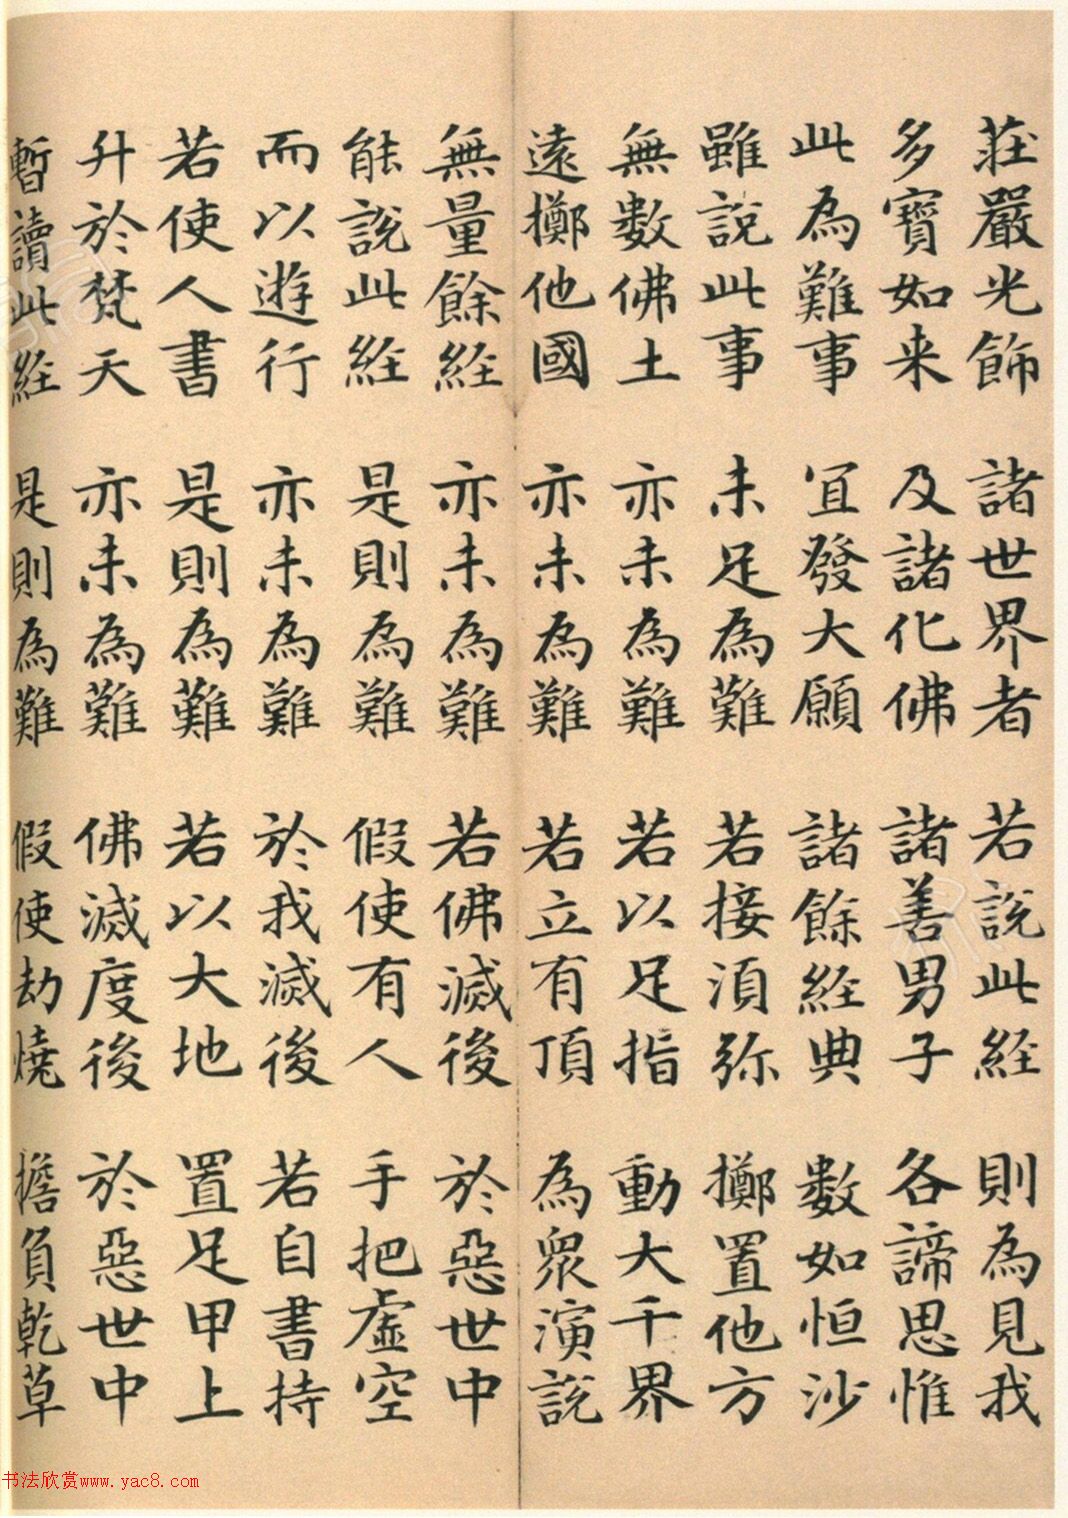 莊嚴光飾 諸世界者 若說此經 則為見我
多寶如来 及諸化佛 諸善男子 各諦思惟
此為難事 宜發大願 諸餘經典 數如恒沙
雖說此事 未足為難 若接湏弥 擲置他方
無數佛土 亦未為難 若以足指 動大千界
遠擲他國 亦未為難 若立有頂 為眾演說
無量餘經 亦未為難 若佛滅後 於惡世中
能說此經 是則為難 假使有人 手把虛空
而以遊行 亦未為難 於我滅後 若自書持
若使人書 是則為難 若以大地 置足甲上
升於梵天 亦未為難 佛滅度後 於惡世中
暫讀此經 是則為難 假使劫燒 擔負乾草
书法欣赏www.yac8.com